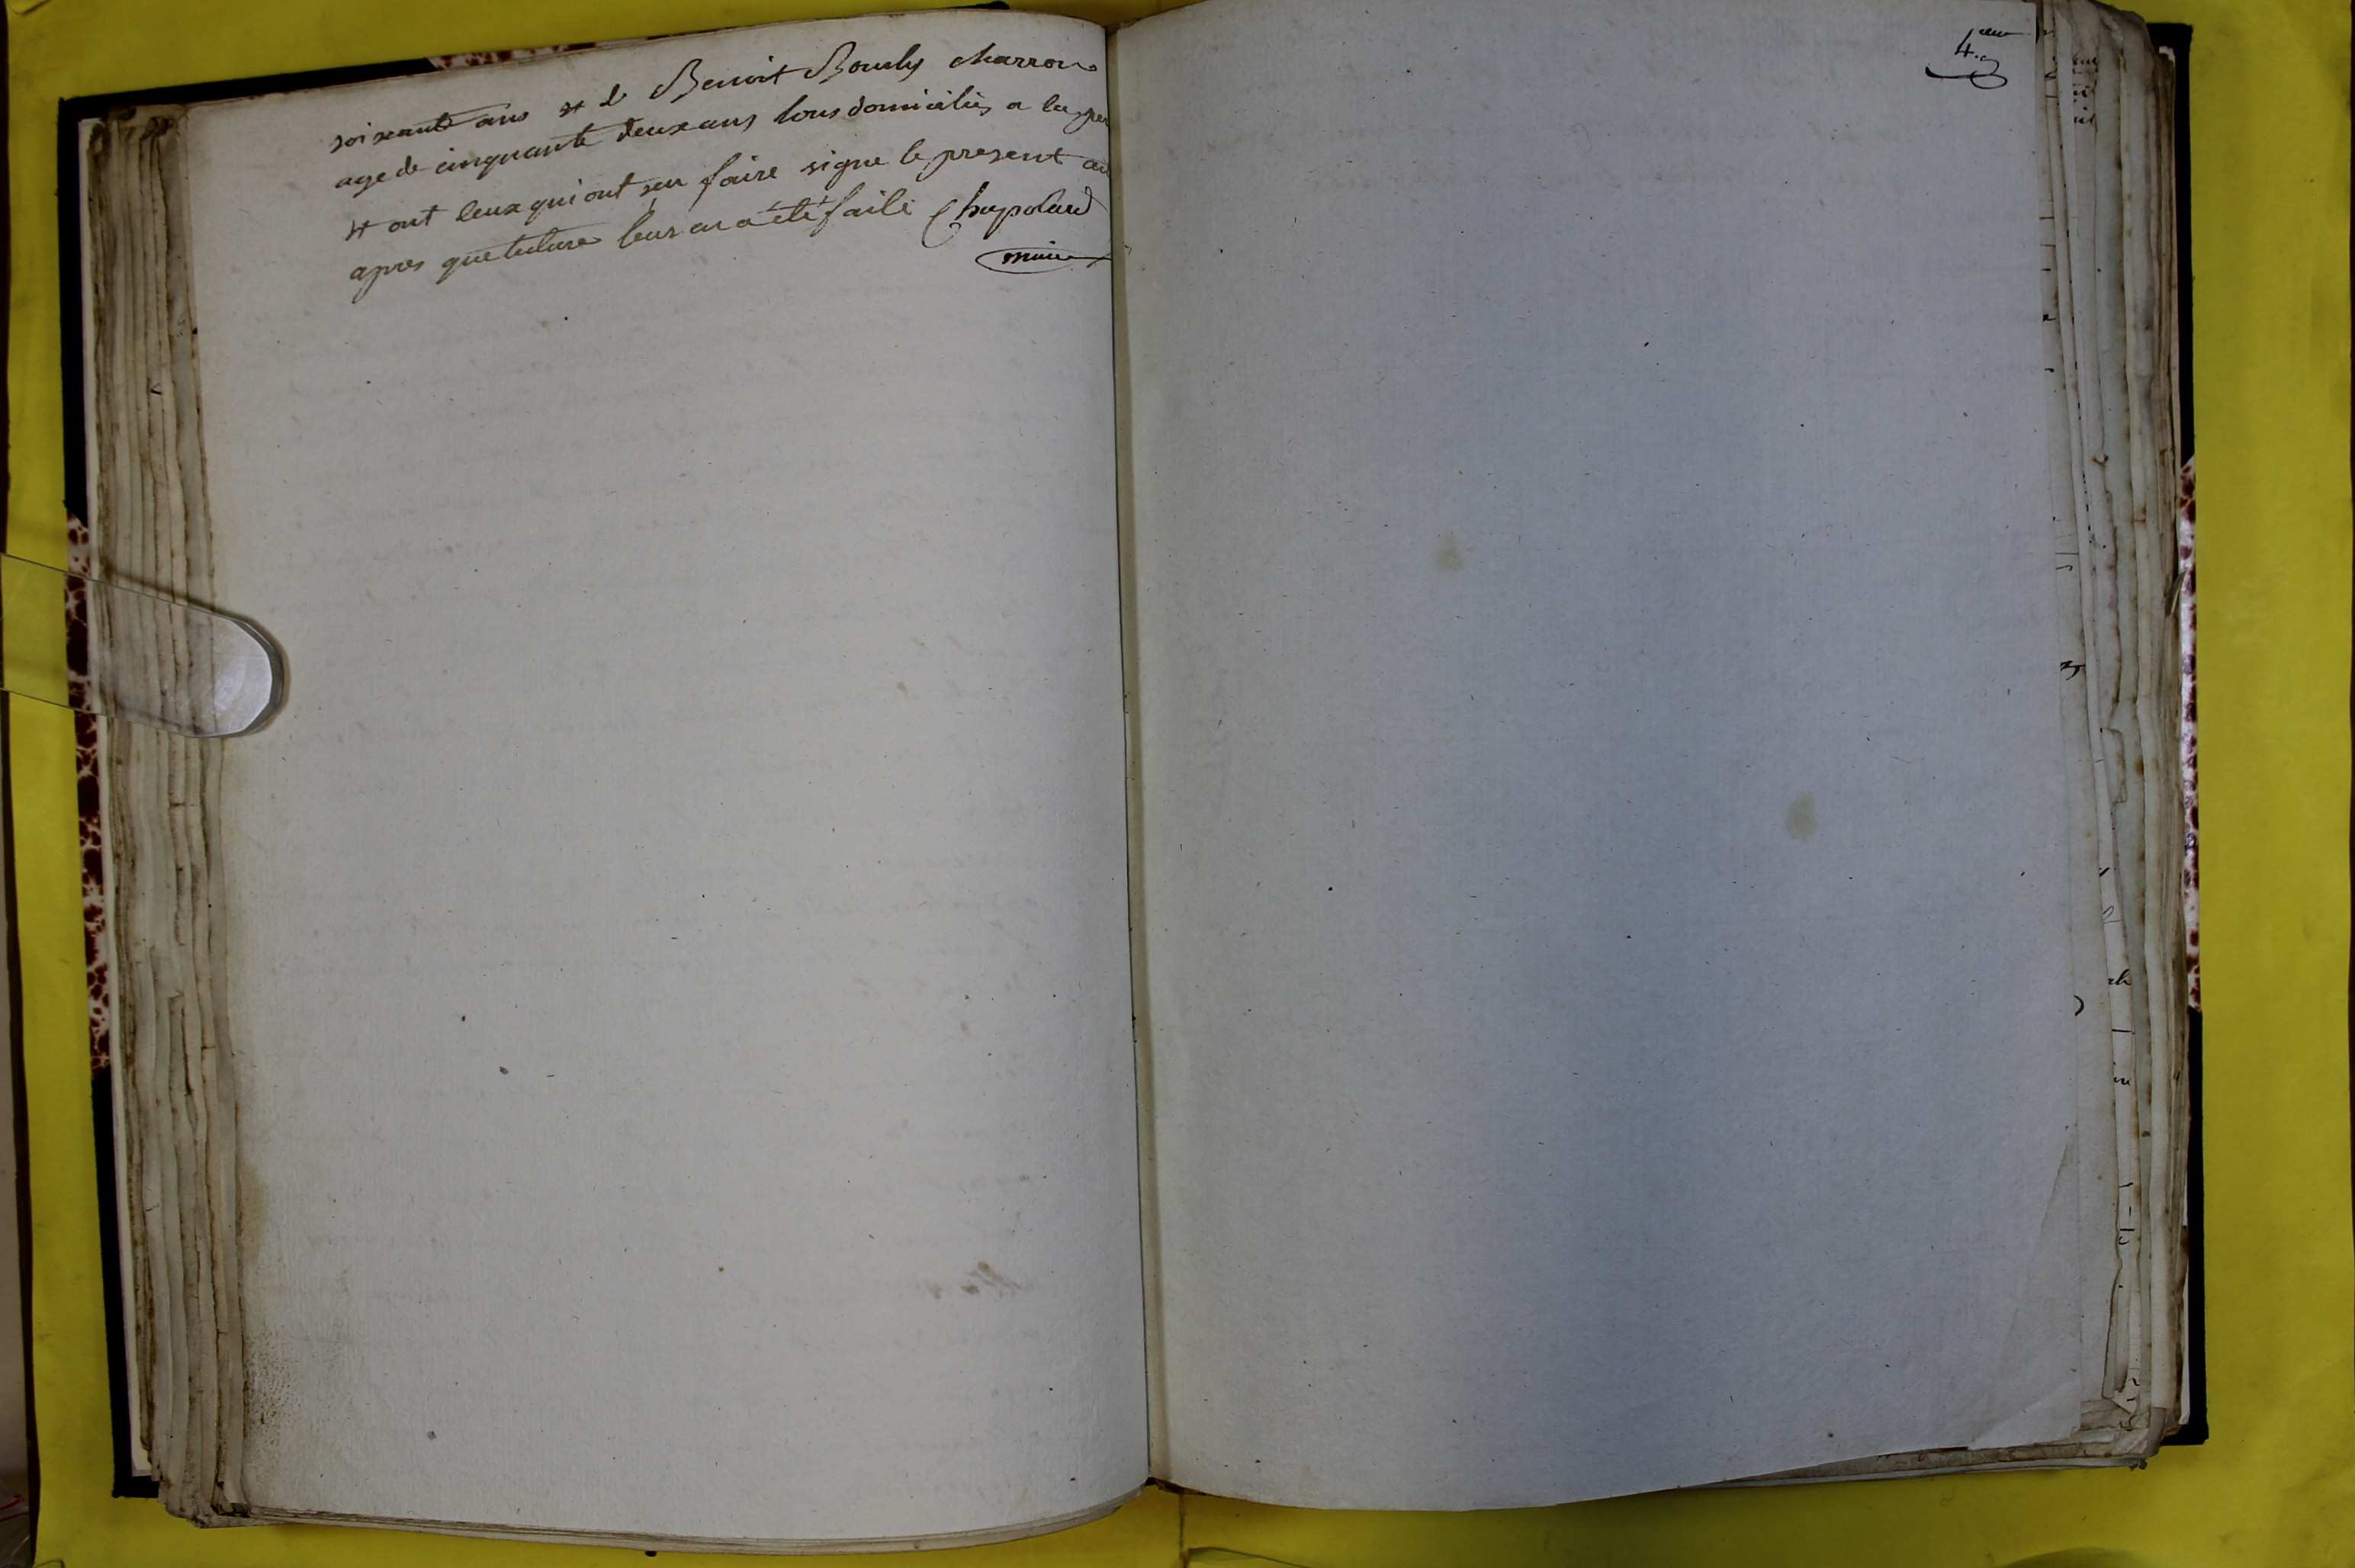 soixante ans et de Benoit Bouly charron
age de cinquante deux ans tous domiciliés a la
et ont ceux qui ont sçu faire signe le present
apres que lecture leur en a été faite Chapolard
maire
4.eme